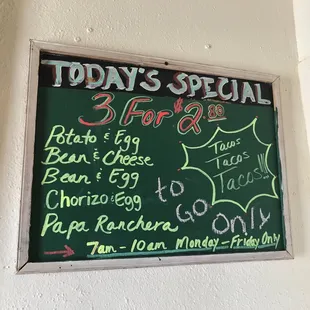 TODAY'S SPECIAL
3 For $2.89
Potato & Egg
Bean & Cheese
Bean & Egg
Chorizo & Egg
Papa Ranchera
Tacos
Tacos
Tacos!!!
to
GO
Only
7am - 10am Monday - Friday Only